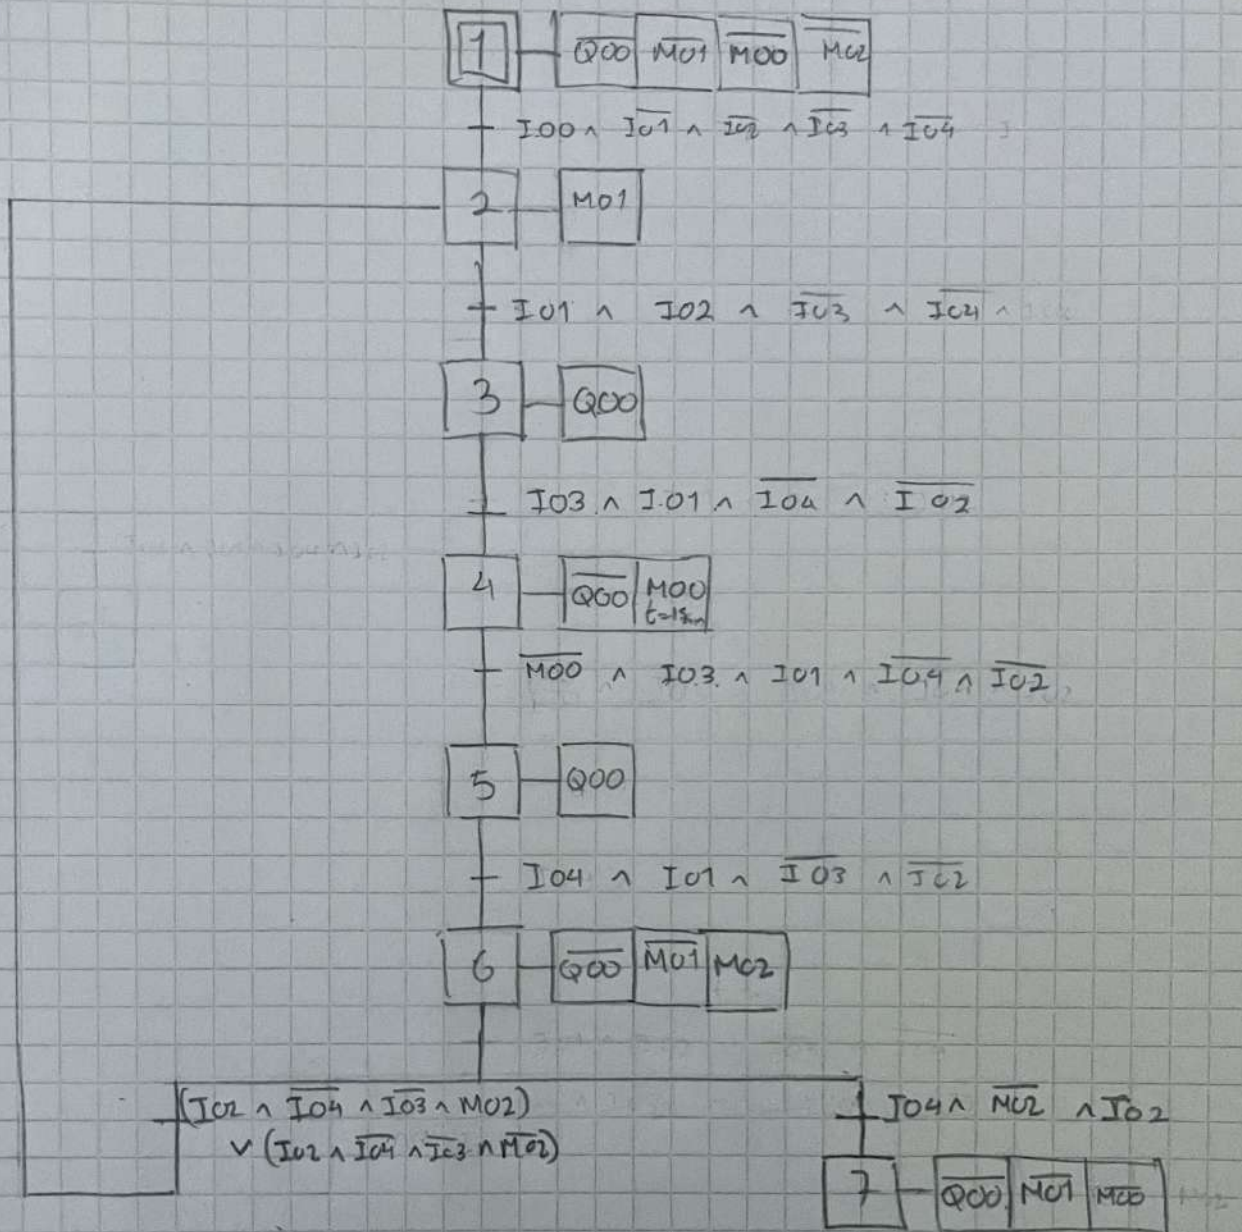 1 Q̅0̅0̅ M̅0̅1̅ M̅0̅0̅ M̅0̅2̅
I00 ∧ I̅0̅1̅ ∧ I̅0̅2̅ ∧ I̅0̅3̅ ∧ I̅0̅4̅
2 M01
I01 ∧ I02 ∧ I̅0̅3̅ ∧ I̅0̅4̅ ∧
3 Q00
I03 ∧ I01 ∧ I̅0̅4̅ ∧ I̅0̅2̅
4 Q̅0̅0̅ M00
M̅0̅0̅ ∧ I03 ∧ I01 ∧ I̅0̅4̅ ∧ I̅0̅2̅
5 Q00
I04 ∧ I01 ∧ I̅0̅3̅ ∧ I̅0̅2̅
6 Q̅0̅0̅ M̅0̅1̅ M02
(I02 ∧ I̅0̅4̅ ∧ I̅0̅3̅ ∧ M02)
∨ (I02 ∧ I̅0̅4̅ ∧ I̅0̅3̅ ∧ M̅0̅2̅)
I04 ∧ M̅0̅2̅ ∧ I02
7 Q̅0̅0̅ M̅0̅1̅ M̅0̅0̅